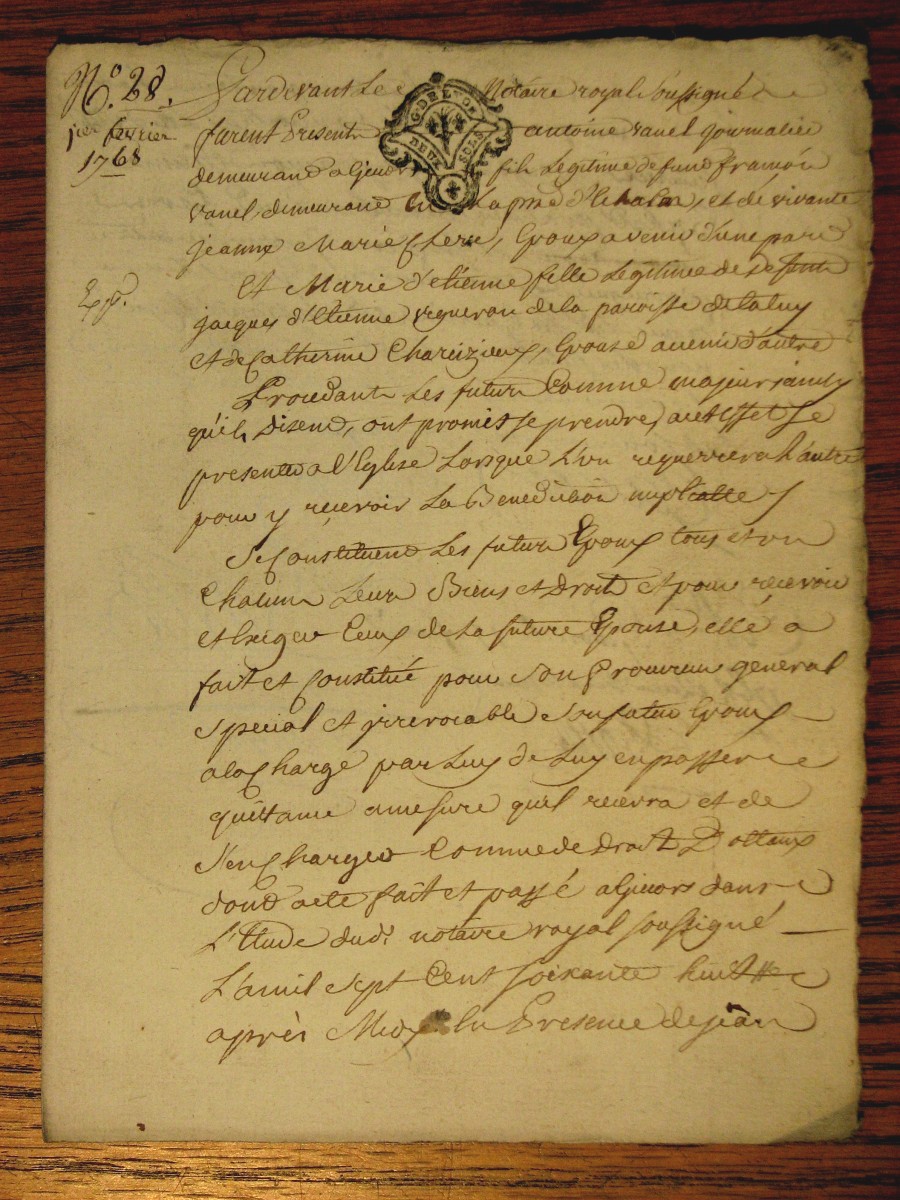 N.° 28.
1er fevrier
1768
Exp.
Pardevant Le Notaire royal soussigné
furent Presents antoine vanel journalier
demeurant a fils Legitime de feu françois
vanel demeurant et de vivante
jeanne Marie Epoux avenir d'une part
Et Marie d'etienne fille Legitime de defunt
jacques d'Etienne vigneron de la paroisse de
et de Catherine Epouse avenir d'autre
Les futurs Comme majeurs ainsy
qu'ils Disent, ont promis se prendre, a cet Effet se
presenter a l'Eglise Lorsque L'un requerrera L'autre
pour y recevoir La Benediction nuptialle
Se Constituent Les futurs Epoux tous et un
Chacun Leurs Biens et Droits Et pour recevoir
et Exiger Ceux de La future Epouse, elle a
fait et Constitué pour son Procureur general
special et irrevocable son futur Epoux
a la Charge par Luy de Luy en passer
quittance a mesure quil recevra et de
s'en Charger Comme de Droit D'ottaux
dont acte fait et passé a dans
L'Etude dud.t notaire royal soussigné
L'an mil sept Cent soixante huit
après Midy En Presence de jean
G. DE LYON
DEUX SOLS